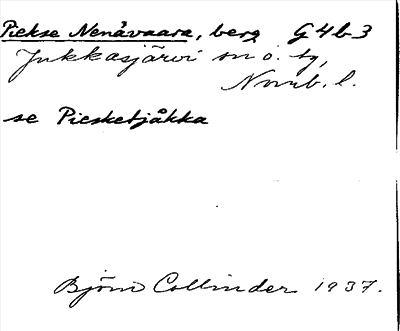 Piekse Nenåvaara, berg G4b3
Jukkasjärvi sn o. tg,
Norrb. l.
se Piesketjåkka
Björn Collinder 1937.